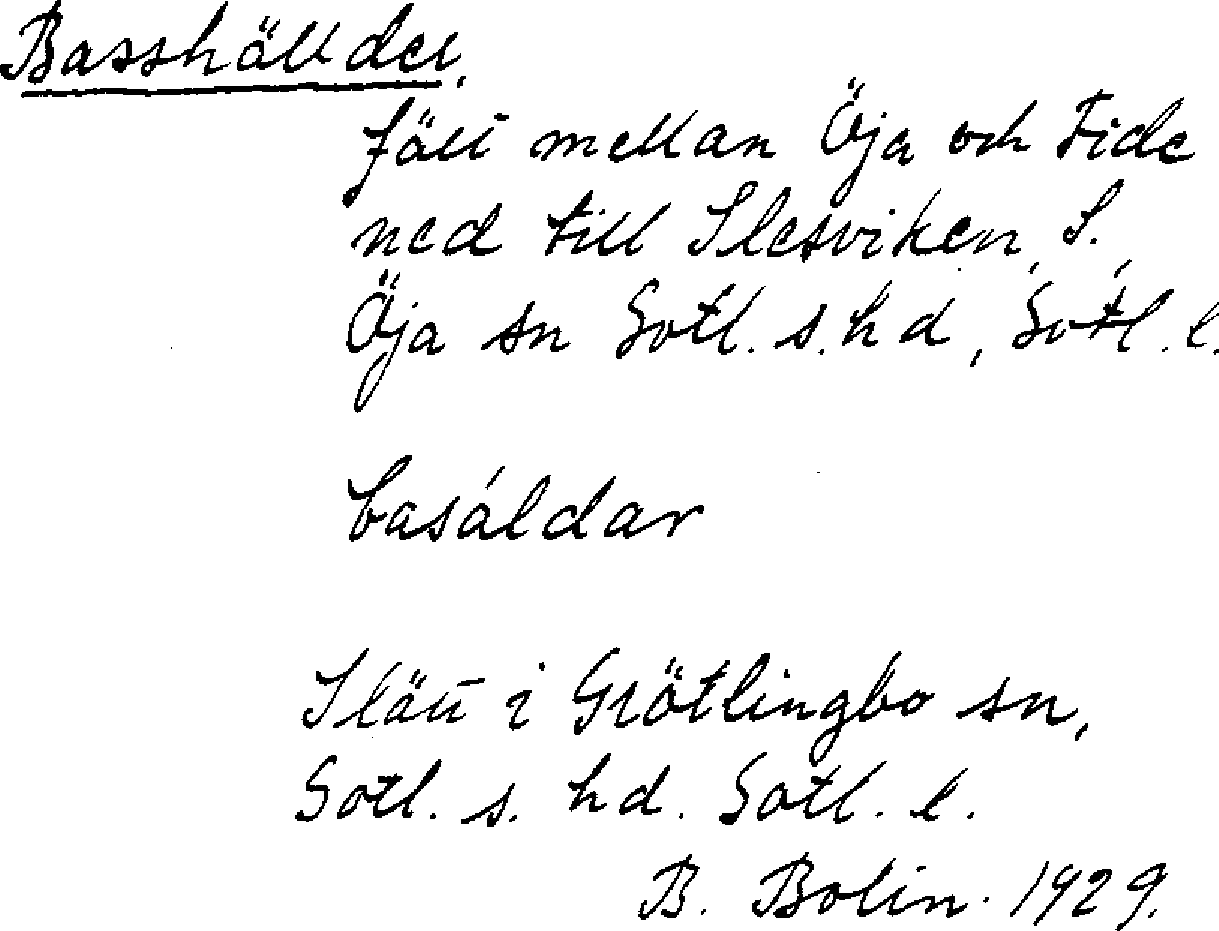 Basshällder,
fält mellan Öja och Fide
ned till Slesviken, S.,
Öja sn Gotl. s. hd, Gotl. l.
basáldar
Slätt i Grötlingbo sn,
Gotl. s. hd. Gotl. l.
B. Bolin. 1929.